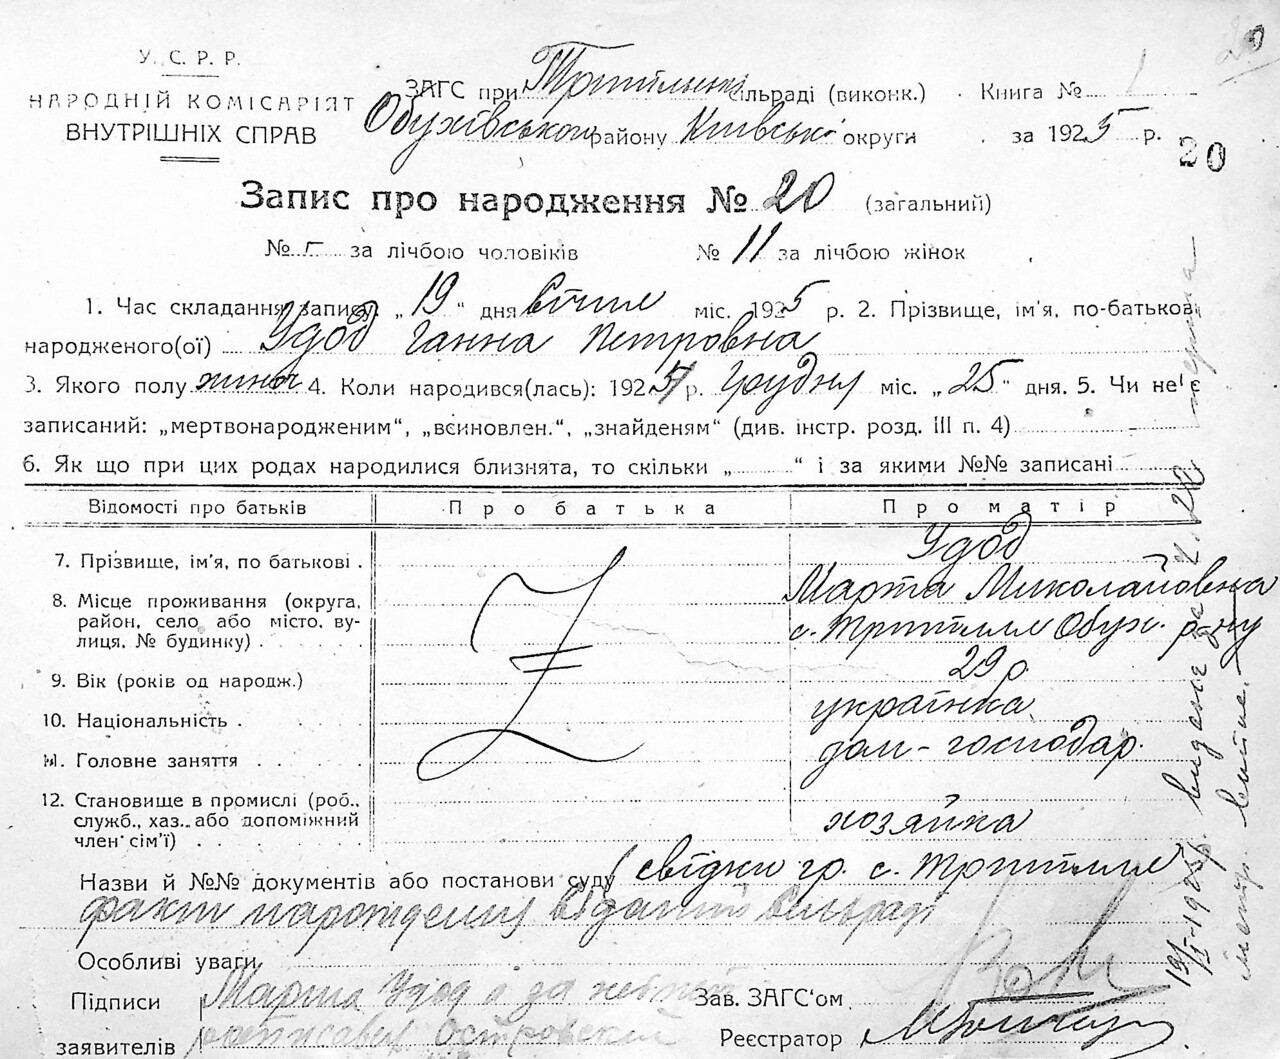 У. С. Р. Р.
НАРОДНІЙ КОМІСАРІЯТ
ВНУТРІШНІХ СПРАВ
ЗАГС при Трипільськ сільраді (виконк.) Книга № 1
Обухівського району Київської округи за 1925 р.
20
20
Запис про народження № 20 (загальний)
№ – за лічбою чоловіків № 11 за лічбою жінок
1. Час складання запису „19" дня січня міс. 1925 р. 2. Прізвище, ім'я, по-батькові
народженого(ої) Удод Ганна Петровна
3. Якого полу жіноч 4. Коли народився(лась): 1924 р. грудня міс. „25" дня. 5. Чи не є
записаний: „мертвонародженим", „всиновлен.", „знайденям" (див. інстр. розд. III п. 4)
6. Як що при цих родах народилися близнята, то скільки „ " і за якими №№ записані
Відомості про батьків Про батька Про матір
7. Прізвище, ім'я, по батькові . Удод
Марта Миколаївна
8. Місце проживання (округа, район, село або місто, вулиця, № будинку) с. Трипілля Обух. р-ну
9. Вік (років од народж.) 29 р.
10. Національність . українка
11. Головне заняття дом-господар.
12. Становище в промислі (роб., служб., хаз. або допоміжний член сім'ї) хозяйка
Назви й №№ документів або постанови суду свідки гр. с. Трипілля
факт народження
Особливі уваги
Підписи Марта Удод а за неї
заявителів Островский
Зав. ЗАГС'ом
Реєстратор
19/I-1925р. видана за № 20
метр. витяг